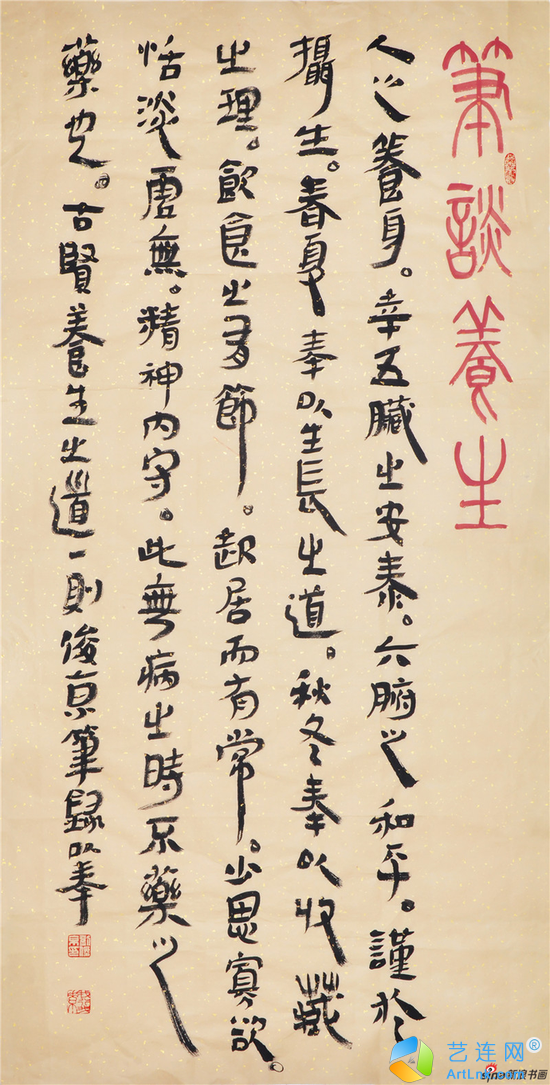 筆談養生
人之養身。幸五臟之安泰。六腑之和平。謹於
攝生。春夏奉以生長之道。秋冬奉以收藏
之理。飲食之有節。起居而有常。少思寡欲。
恬淡虛無。精神內守。此無病之時不藥之
藥也。古賢養生之道一則俊京筆錄以奉
艺连网®
sina新浪书画